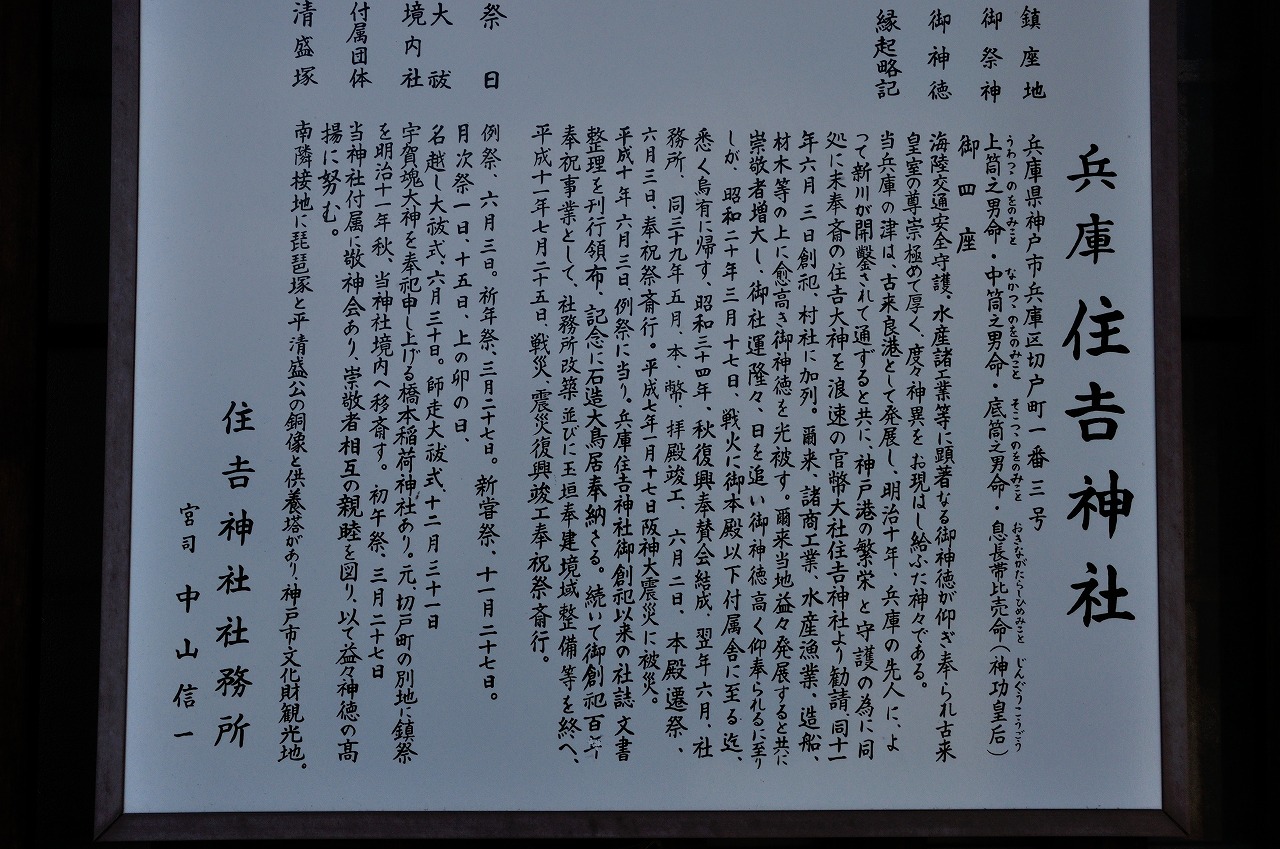 兵庫住吉神社
鎮座地　兵庫県神戸市兵庫区切戸町一番三号
御祭神　上筒之男命・中筒之男命・底筒之男命・息長帯比売命（神功皇后）
うわつつのをのみこと　なかつつのをのみこと　そこつつのをのみこと　おきながたらしひめみこと　じんぐうこうごう
御四座
御神徳　海陸交通安全守護。水産諸工業等に顕著なる御神徳が仰ぎ奉られ古来
皇室の尊崇極めて厚く、度々神異をお現はし給ふた神々である。
縁起略記　当兵庫の津は、古来良港として発展し、明治十年、兵庫の先人に、よ
って新川が開鑿されて通ずると共に、神戸港の繁栄と守護の為に同
処に末奉斎の住吉大神を浪速の官幣大社住吉神社より勧請、同十一
年六月三日創祀、村社に加列。爾来、諸商工業、水産漁業、造船、
材木等の上に愈高き御神徳を光被す。爾来当地益々発展すると共に
崇敬者増大し、御社運隆々、日を追い御神徳高く仰奉られるに至り
しが、昭和二十年三月十七日、戦火に御本殿以下付属舎に至る迄、
悉く烏有に帰す、昭和三十四年、秋復興奉賛会結成、翌年六月、社
務所、同三十九年五月、本、幣、拝殿竣工、六月二日、本殿遷祭、
六月三日、奉祝祭斎行。平成七年一月十七日阪神大震災に被災。
平成十年六月三日、例祭に当り。兵庫住吉神社御創祀以来の社誌文書
整理を刊行領布、記念に石造大鳥居奉納さる。続いて御創祀百二十
奉祝事業として、社務所改築並びに玉垣奉建境域整備等を終へ、
平成十一年七月二十五日、戦災、震災復興竣工奉祝祭斎行。
祭日　例祭、六月三日。祈年祭、三月二十七日。新嘗祭、十一月二十七日。
月次祭一日、十五日、上の卯の日、
大祓　名越し大祓式、六月三十日。師走大祓式、十二月三十一日
境内社　宇賀塊大神を奉祀申し上げる橋本稲荷神社あり。元、切戸町の別地に鎮祭
を明治十一年秋、当神社境内へ移斎す。初午祭、三月二十七日
付属団体　当神社付属に敬神会あり、崇敬者相互の親睦を図り、以て益々神徳の高
揚に努む。
清盛塚　南隣接地に琵琶塚と平清盛公の銅像と供養塔があり神戸市文化財観光地。
住吉神社社務所
宮司　中山信一